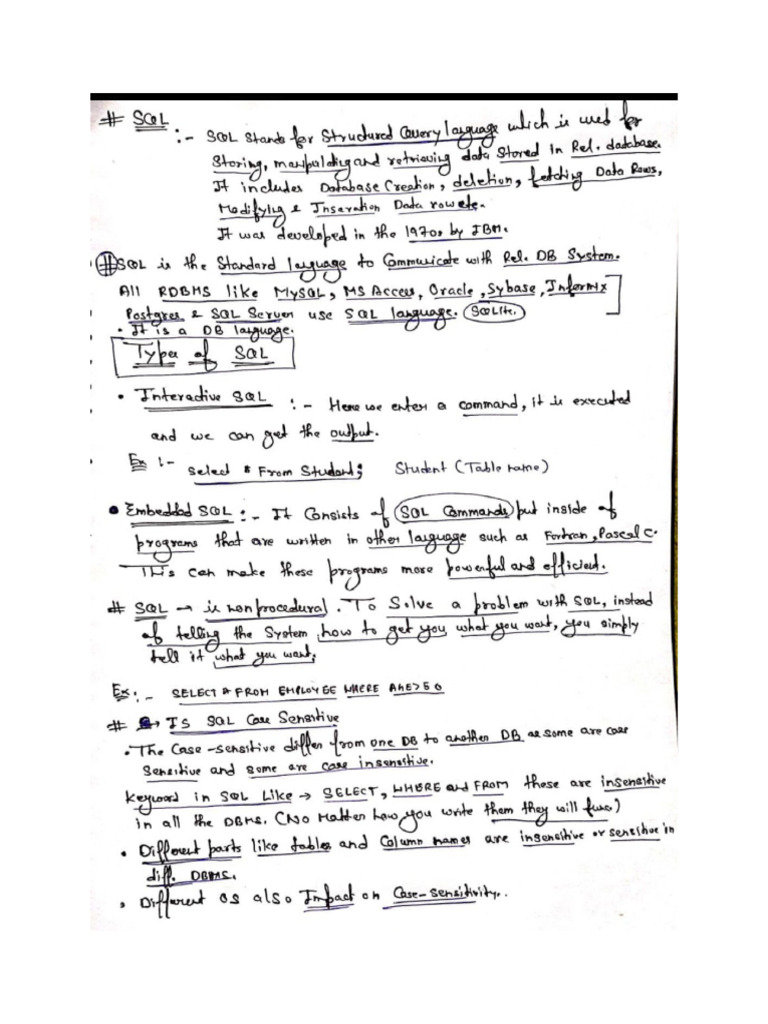 # SQL
:- SQL stands for Structured Query language which is used for
Storing, manipulating and retrieving data Stored in Rel. database.
It includes Database Creation, deletion, fetching Data Rows,
Modifying & Inseration Data row etc.
It was developed in the 1970s by IBM.
# SQL is the Standard language to Communicate with Rel. DB System.
All RDBMS like MySQL, MS Access, Oracle, Sybase, Informix
Postgres & SQL Server use SQL language. SQLite.
• It is a DB language.
Types of SQL
• Interactive SQL :- Here we enter a command, it is executed
and we can get the output.
Ex :-
Select * From Student; Student (Table name)
• Embedded SQL :- It Consists of SQL Commands put inside of
programs that are written in other language such as Fortran, Pascal C.
This can make these programs more powerful and efficient.
# SQL → is nonprocedural. To Solve a problem with SQL, instead
of telling the System how to get you what you want, you simply
tell it what you want.
Ex :- SELECT * FROM EMPLOYEE WHERE
# → Is SQL Case Sensitive
• The Case-sensitive differ from one DB to another DB as some are case
Sensitive and some are case insensitive.
Keyword in SQL Like → SELECT, WHERE and FROM these are insensitive
in all the DBMS. (No Matter how you write them they will func)
• Different parts like tables and Column names are insensitive or sensitive in
diff. DBMS.
• Different OS also Impact on Case-Sensitivity..